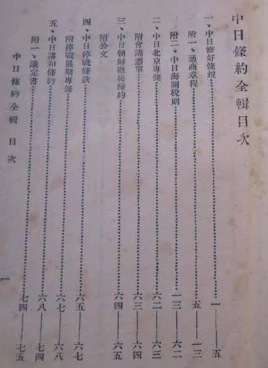 中日條約全輯目次
一、中日修好條規……………一——五
附一、通商章程……………五——一三
附二、中日海關稅則……………一三——六二
二、中日北京專條……………六二——六三
附會議憑單……………六三——六四
三、中日朝鮮撤兵條約……………六四——六五
附公文
四、中日停戰條款……………六五——六七
附停戰展期專條……………六七——六八
五、中日講和條約……………六八——七四
附一、議定書……………七四——七五
中日條約全輯 目次 一